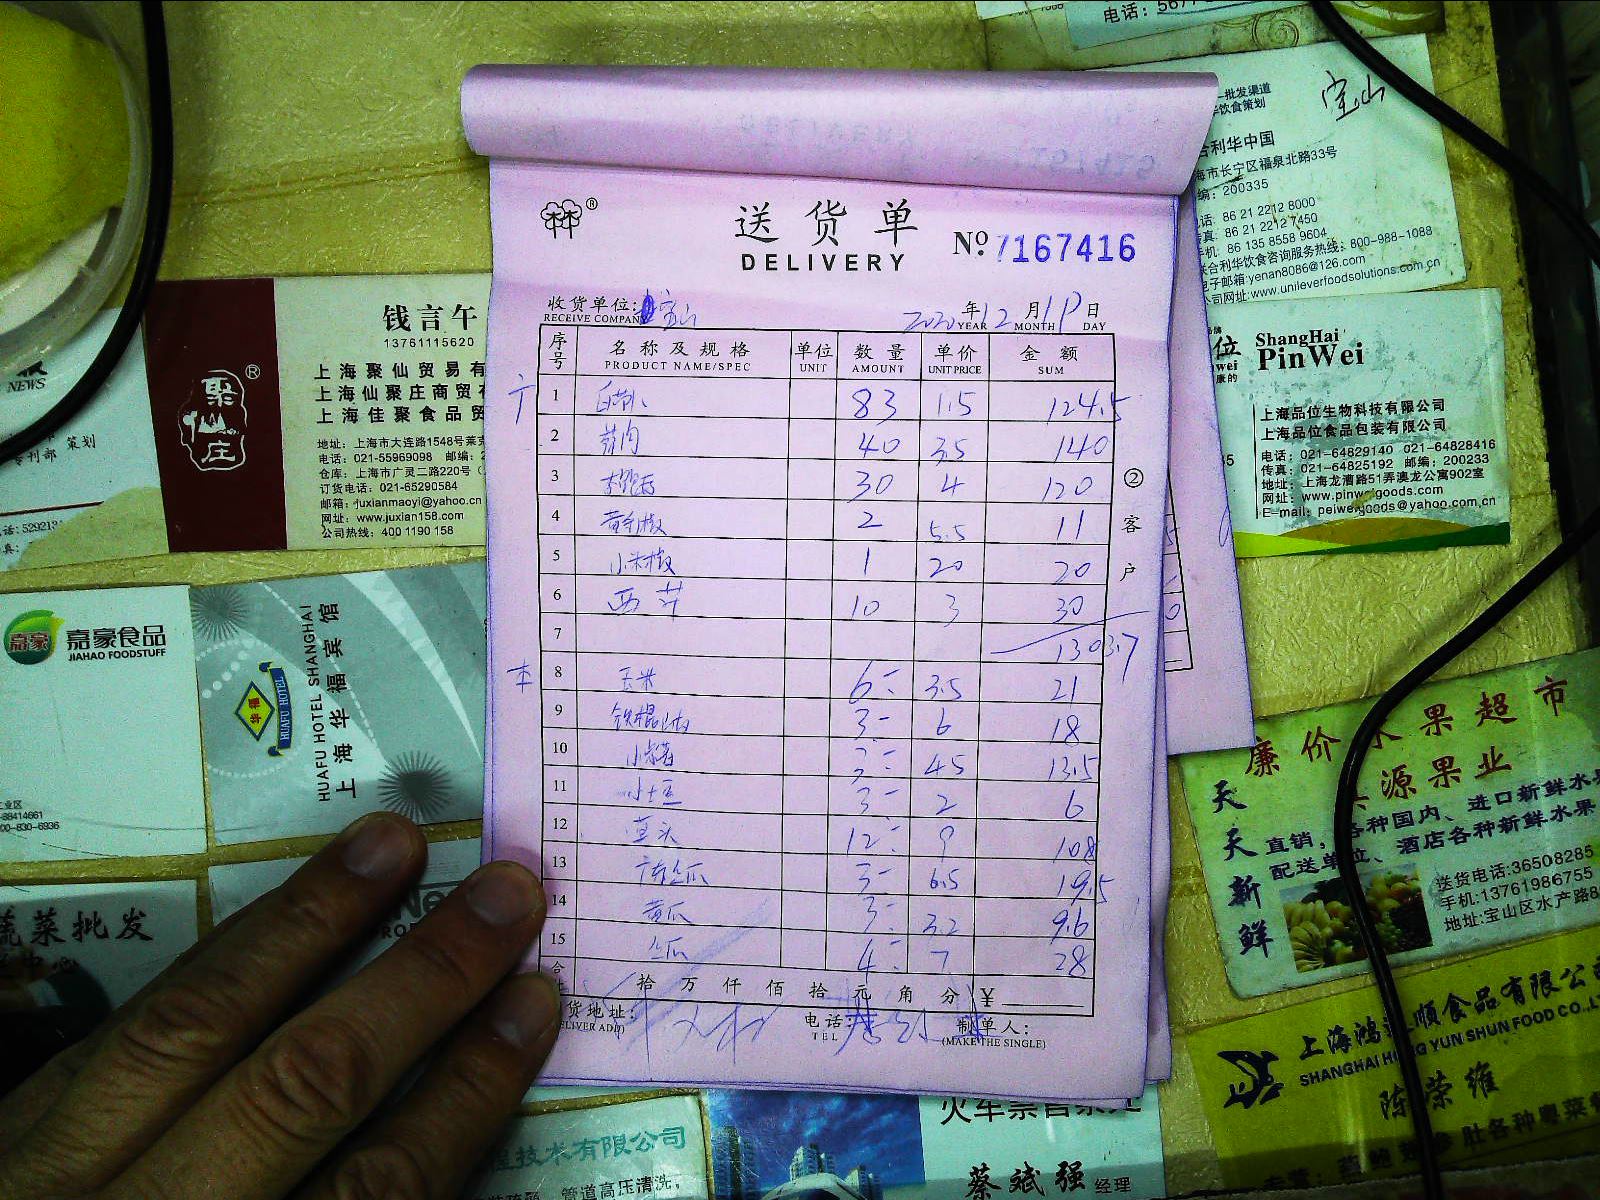 电话: 567
一批发渠道
华饮食策划
宝山
合利华中国
海市长宁区福泉北路33号
编: 200335
电话: 86 21 2212 8000
传真: 86 21 2212 7450
手机: 86 135 8558 9604
联合利华饮食咨询服务热线: 800-988-1088
电子邮箱:yenan8086@126.com
公司网址:www.unileverfoodsolutions.com.cn
送货单
DELIVERY
№ 7167416
收货单位: 宝山
RECEIVE COMPANY
2020 年 12 月 19 日
YEAR MONTH DAY
序号 名称及规格 单位 数量 单价 金额
PRODUCT NAME/SPEC UNIT AMOUNT UNIT PRICE SUM
1 83 1.5 124.5
2 40 3.5 140
3 30 4 120
4 2 5.5 11
5 小米椒 1 20 20
6 西芹 10 3 30
7 1303.7
8 玉米 6 3.5 21
9 铁棍山药 3 6 18
10 3 4.5 13.5
11 小土豆 3 2 6
12 12 9 108
13 3 6.5 19.5
14 黄瓜 3 3.2 9.6
15 丝瓜 4 7 28
合 拾 万 仟 佰 拾 元 角 分 ¥
货地址: 电话: 制单人:
TEL (MAKE THE SINGLE)
② 客户
钱言午
13761115620
聚仙庄
上海聚仙贸易有
上海仙聚庄商贸有
上海佳聚食品贸
地址: 上海市大连路1548号莱克
电话: 021-55969098 邮编: 2
仓库: 上海市广灵二路220号
订货电话: 021-65290584
邮箱: juxianmaoyi@yahoo.cn
网址: www.juxian158.com
公司热线: 400 1190 158
NEWS
策划
专刊部
嘉豪
嘉豪食品
JIAHAO FOODSTUFF
88414661
00-830-6936
华福
HUAFU HOTEL
HUAFU HOTEL SHANGHAI
上海华福宾馆
蔬菜批发
ShangHai
PinWei
上海品位生物科技有限公司
上海品位食品包装有限公司
电话: 021-64829140 021-64828416
传真: 021-64825192 邮编: 200233
地址: 上海龙漕路51弄澳龙公寓902室
网址: www.pinweigoods.com
E-mail: peiweigoods@yahoo.com.cn
廉价水果超市
源果业
天天新鲜
直销,各种国内、进口新鲜水果
配送单位、酒店各种新鲜水果
送货电话:36508285
手机:13761986755
地址:宝山区水产路8
顺食品有限公司
SHANGHAI HONG YUN SHUN FOOD CO.,LT
陈荣维
程技术有限公司
管道高压清洗,
蔡斌强 经理